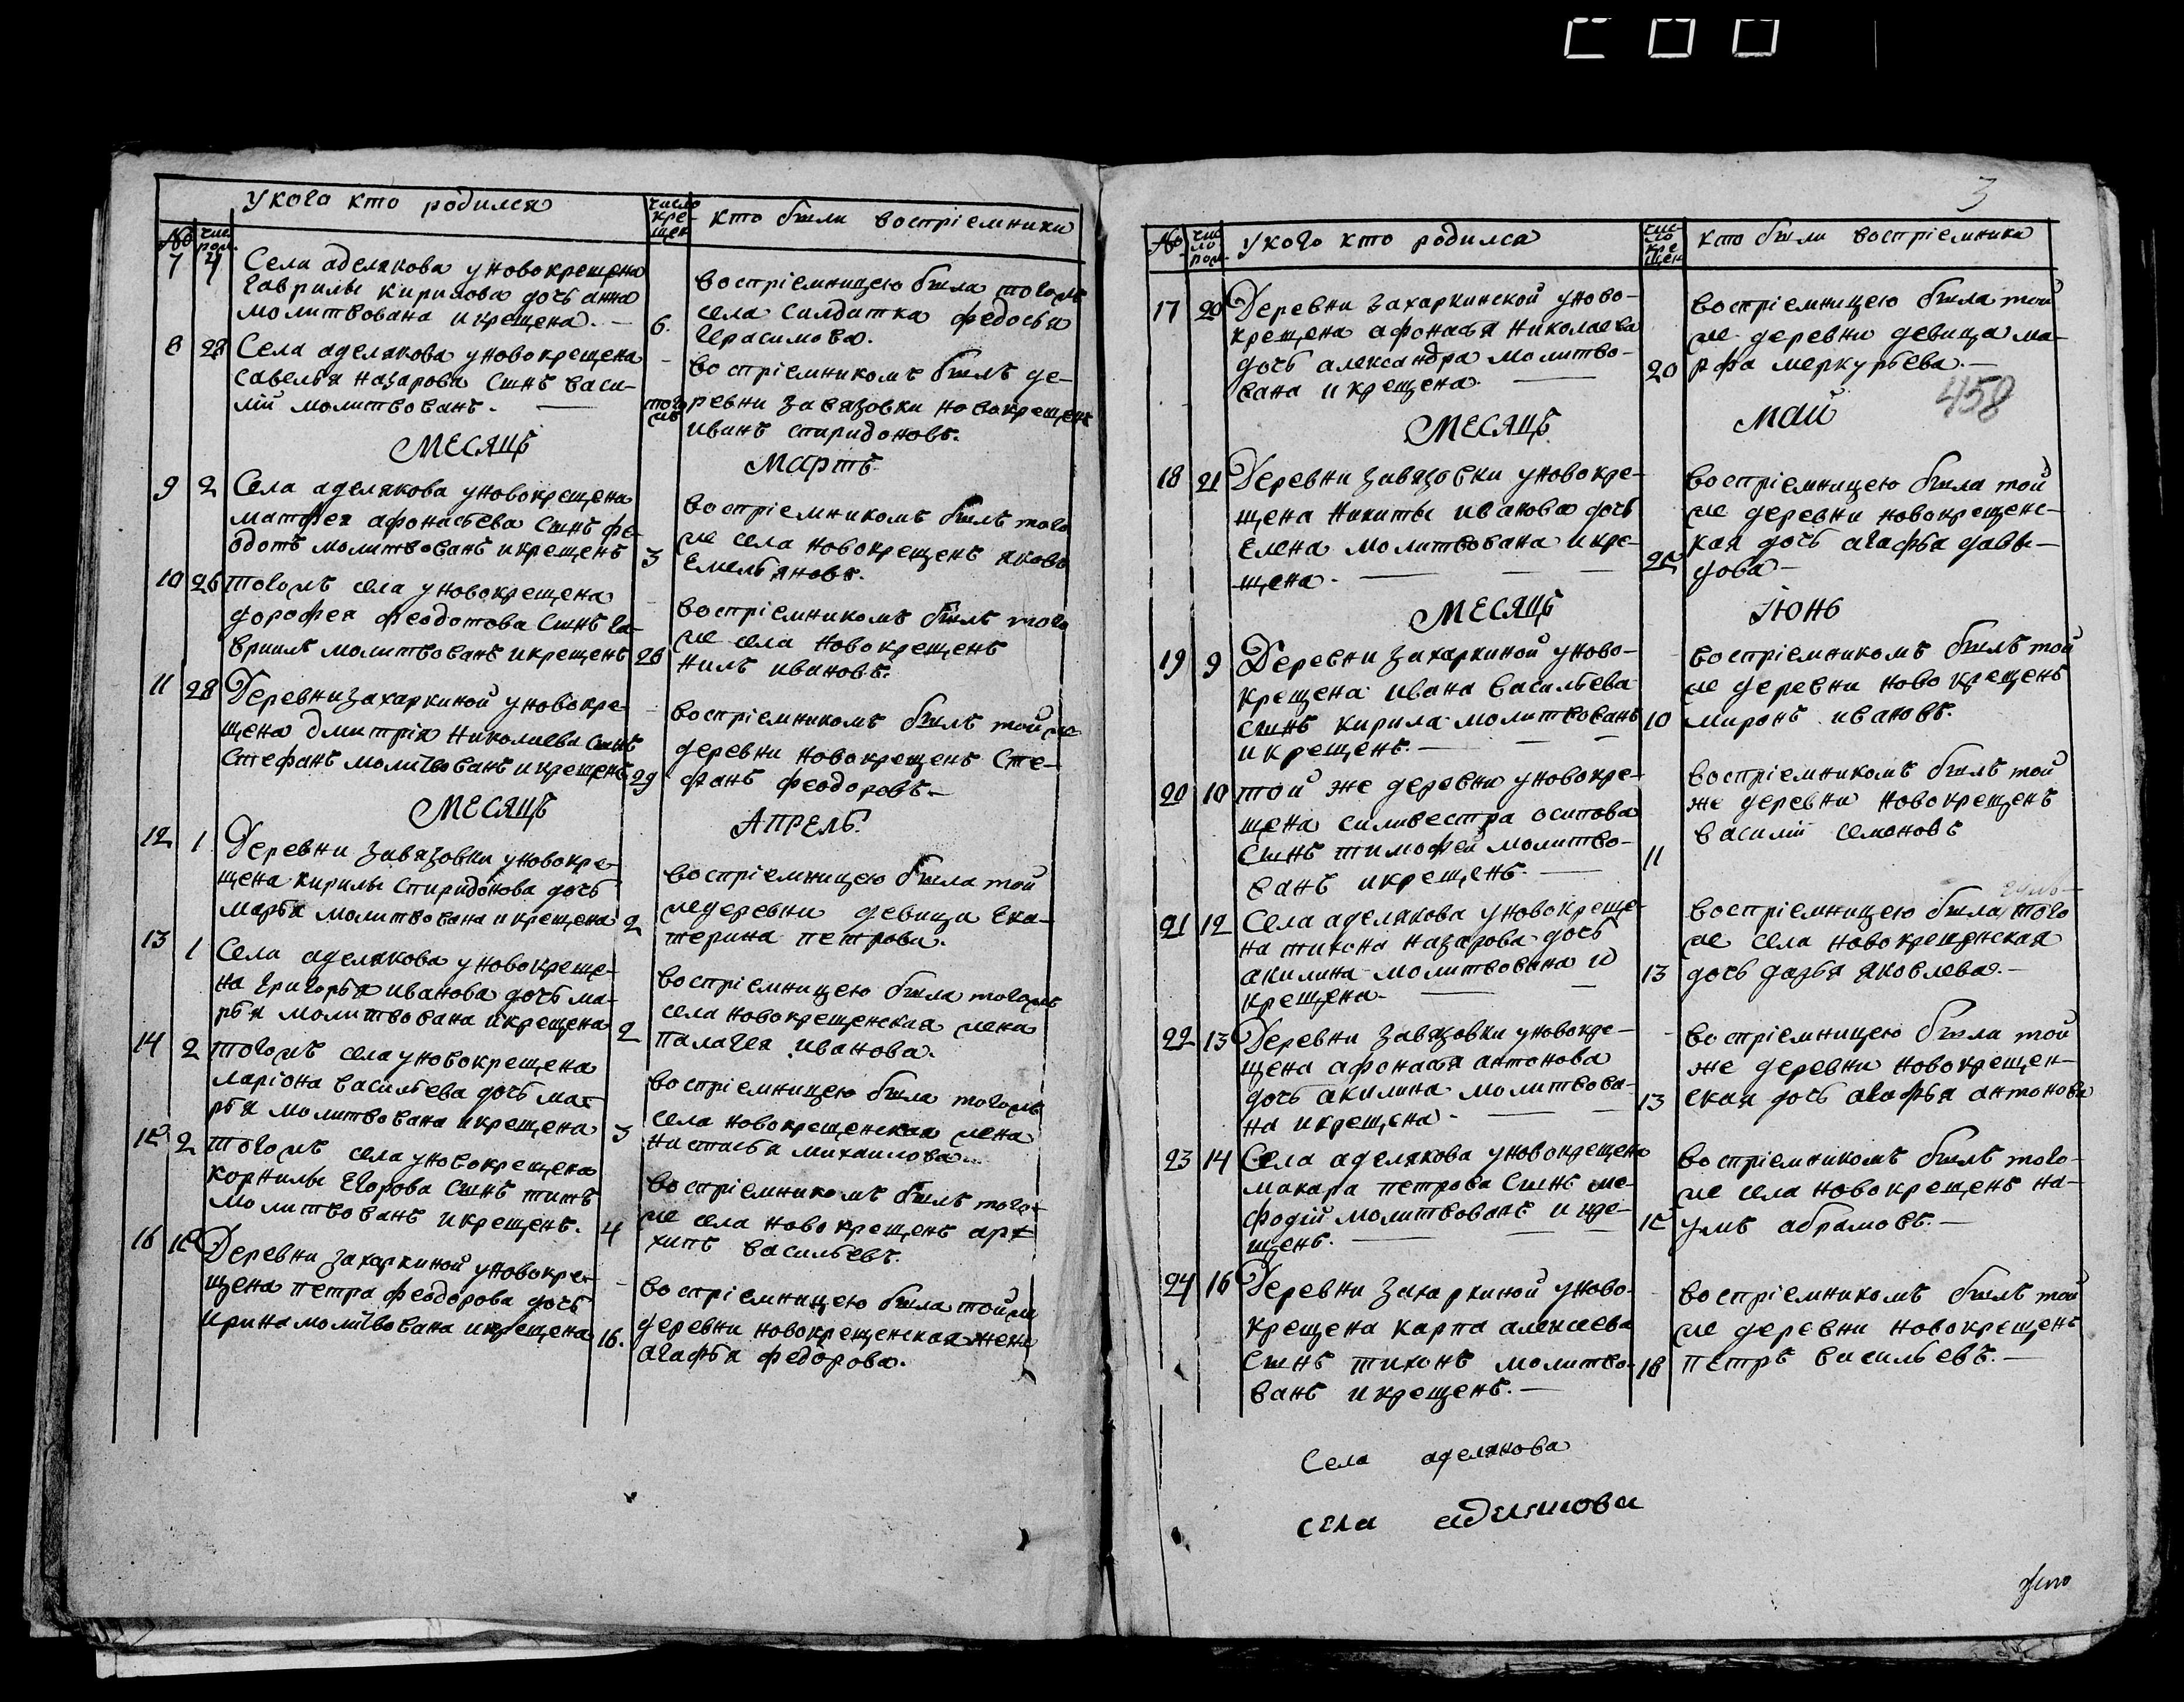 У кого кто родился
число крещен
кто были востріемники
№
чис. рож.
7 4 Села аделякова у новокрещена
гаврилы кирилова дочь анна
молитвована и крещена. —
6.
востріемницею была тогожъ
села салдатка федосья
герасимова.
8 28 Села аделякова у новокрещена
савелья назарова сынъ васи-
лій молитвованъ. —
тогожъ
востріемникомъ былъ де-
ревни завязовки новокрещенъ
иванъ спиридоновъ.
МЕСЯЦЪ
Мартъ
9 2 Села аделякова у новокрещена
матфея афонасьева сынъ фе-
одотъ молитвованъ и крещенъ
3
востріемникомъ былъ того
же села новокрещенъ яковъ
Емельяновъ.
10 26 тогожъ села у новокрещена
дорофея феодотова сынъ га-
вриилъ молитвованъ и крещенъ
26
востріемникомъ былъ того
же села новокрещенъ
нилъ ивановъ.
11 28 Деревни захаркиной у новокре-
щена дмитрія николаева сынъ
Стефанъ молитвованъ и крещенъ
29
востріемникомъ былъ той же
деревни новокрещенъ Сте-
фанъ феодоровъ. —
МЕСЯЦЪ
АПРЕЛЬ.
12 1 Деревни завязовки у новокре-
щена кирилы спиридонова дочь
марья молитвована и крещена
2
востріемницею была той
же деревни девица ека-
терина петрова.
13 1 Села аделякова у новокреще-
на григорья иванова дочь ма-
рья молитвована и крещена
2
востріемницею была тогожъ
села новокрещенская жена
палагея иванова.
14 2 тогожъ села у новокрещена
ларіона васильева дочь ма-
рья молитвована и крещена
3
востріемницею была тогожъ
села новокрещенская жена
настасья михаилова.
15 2 тогожъ села у новокрещена
корнилы Егорова сынъ титъ
молитвованъ и крещенъ.
4
востріемникомъ былъ того-
же села новокрещенъ ар-
хипъ васильевъ.
16 15 Деревни захаркиной у новокре-
щена петра феодорова дочь
ирина молитвована и крещена
16.
востріемницею была той же
деревни новокрещенская жена
агафья федорова.
3
№
чис-
ло
рож.
У кого кто родился
чис-
ло
кре
щен
кто были востріемники
17 20 Деревни захаркинской у ново-
крещена афонасья николаева
дочь александра молитво-
вана и крещена. —
20
востріемницею была той
же деревни девица ма-
рфа меркурьева. —
458
МЕСЯЦЪ
Май
18 21 Деревни завязовки у новокре-
щена никиты иванова дочь
Елена молитвована и кре-
щена. —
востріемницею была той
же деревни новокрещенс-
кая дочь агафья давы-
дова —
МЕСЯЦЪ
Іюнь
19 9 Деревни захаркиной у ново-
крещена ивана васильева
сынъ кирила молитвованъ
и крещенъ. —
10
востріемникомъ былъ той
же деревни новокрещенъ
миронъ ивановъ.
20 10 той же деревни у новокре-
щена силивестра осипова
сынъ тимофей молитво-
ванъ и крещенъ. —
11
востріемникомъ былъ той
же деревни новокрещенъ
василій семоновъ
21 12 Села аделякова у новокреще-
на тихона назарова дочь
акилина молитвована и
крещена. —
13
востріемницею была того
же села новокрещенская
дочь дарья яковлева. —
22 13 Деревни завязовки у новокре-
щена афонасья антонова
дочь акилина молитвова-
на и крещена. —
13
востріемницею была той
же деревни новокрещен-
ская дочь агафья антонова
23 14 Села аделякова у новокрещена
макара петрова сынъ ме-
фодій молитвованъ и кре-
щенъ. —
15
востріемникомъ былъ того-
же села новокрещенъ на-
умъ абрамовъ. —
24 16 Деревни захаркиной у ново-
крещена карпа алексеева
сынъ тихонъ молитво-
ванъ и крещенъ. —
18
востріемникомъ былъ той
же деревни новокрещенъ
петръ васильевъ. —
Села аделякова
села аделякова